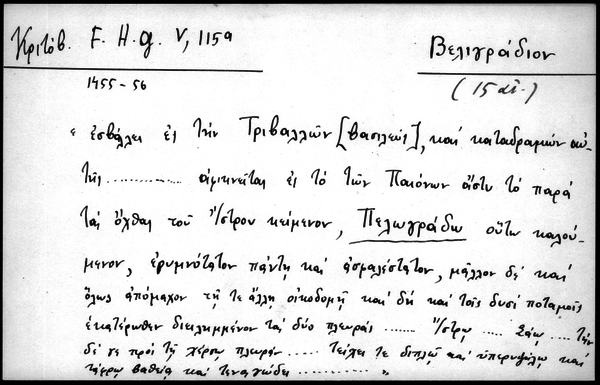 Κριτόβ. F. H. g. V, 115a
Βελιγράδιον
1455-56
(15 αἰ.)
« ἐσβάλλει ἐς τὴν Τριβαλλῶν [βασιλεὺς], καὶ καταδραμὼν αὐ-
τῆς .............. ἀφικνεῖται ἐς τὸ τῶν Παιόνων ἄστυ τὸ παρὰ
ταῖς ὄχθαις τοῦ Ἴστρου κείμενον, Πελογράδω οὕτω καλού-
μενον, ἐρυμνότατον πάντῃ καὶ ἀσφαλέστατον, μᾶλλον δὲ καὶ
ὅλως ἀπόμαχον τῇ τε ἄλλῃ οἰκοδομῇ καὶ δὴ καὶ τοῖς δυσὶ ποταμοῖς
ἑκατέρωθεν διειλημμένον τὰς δύο πλευράς ....... Ἴστρῳ ..... Σάῳ .... τὴν
δέ γε πρὸς τῇ χέρσῳ πλευράν ..... τείχει τε διπλῷ καὶ ὑπερυψήλῳ καὶ
τάφρῳ βαθείᾳ καὶ τεναγώδει ............ »